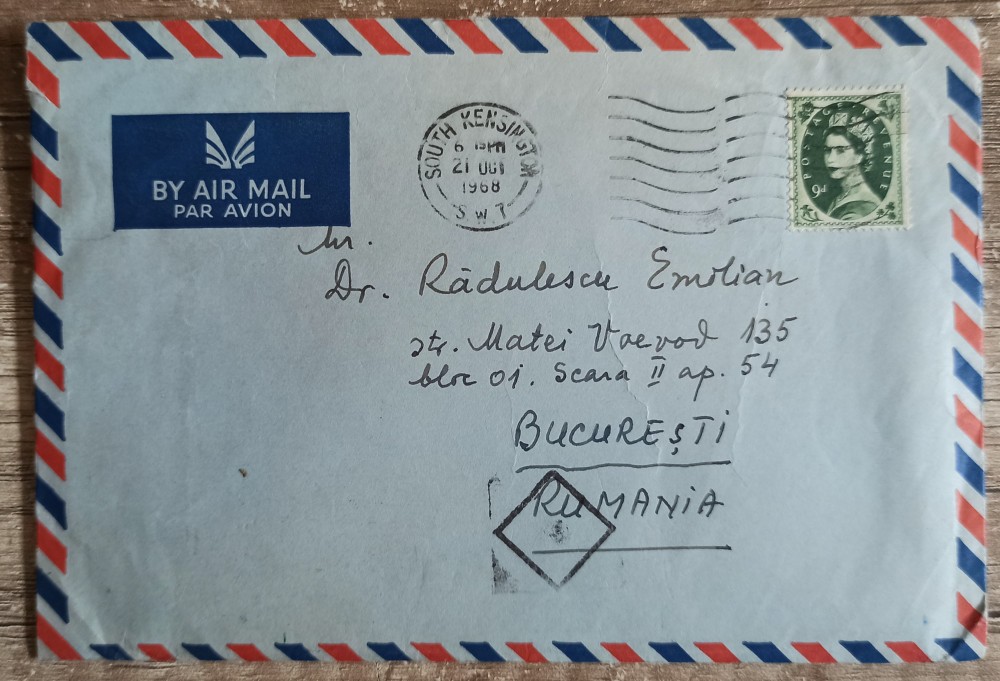 BY AIR MAIL
PAR AVION
SOUTH KENSINGTON
21 OCT
1968
S W 7
POSTAGE REVENUE
9d
Dr. Rădulescu Emilian
str. Matei Voevod 135
bloc 01. Scara II ap. 54
BUCUREȘTI
RUMANIA